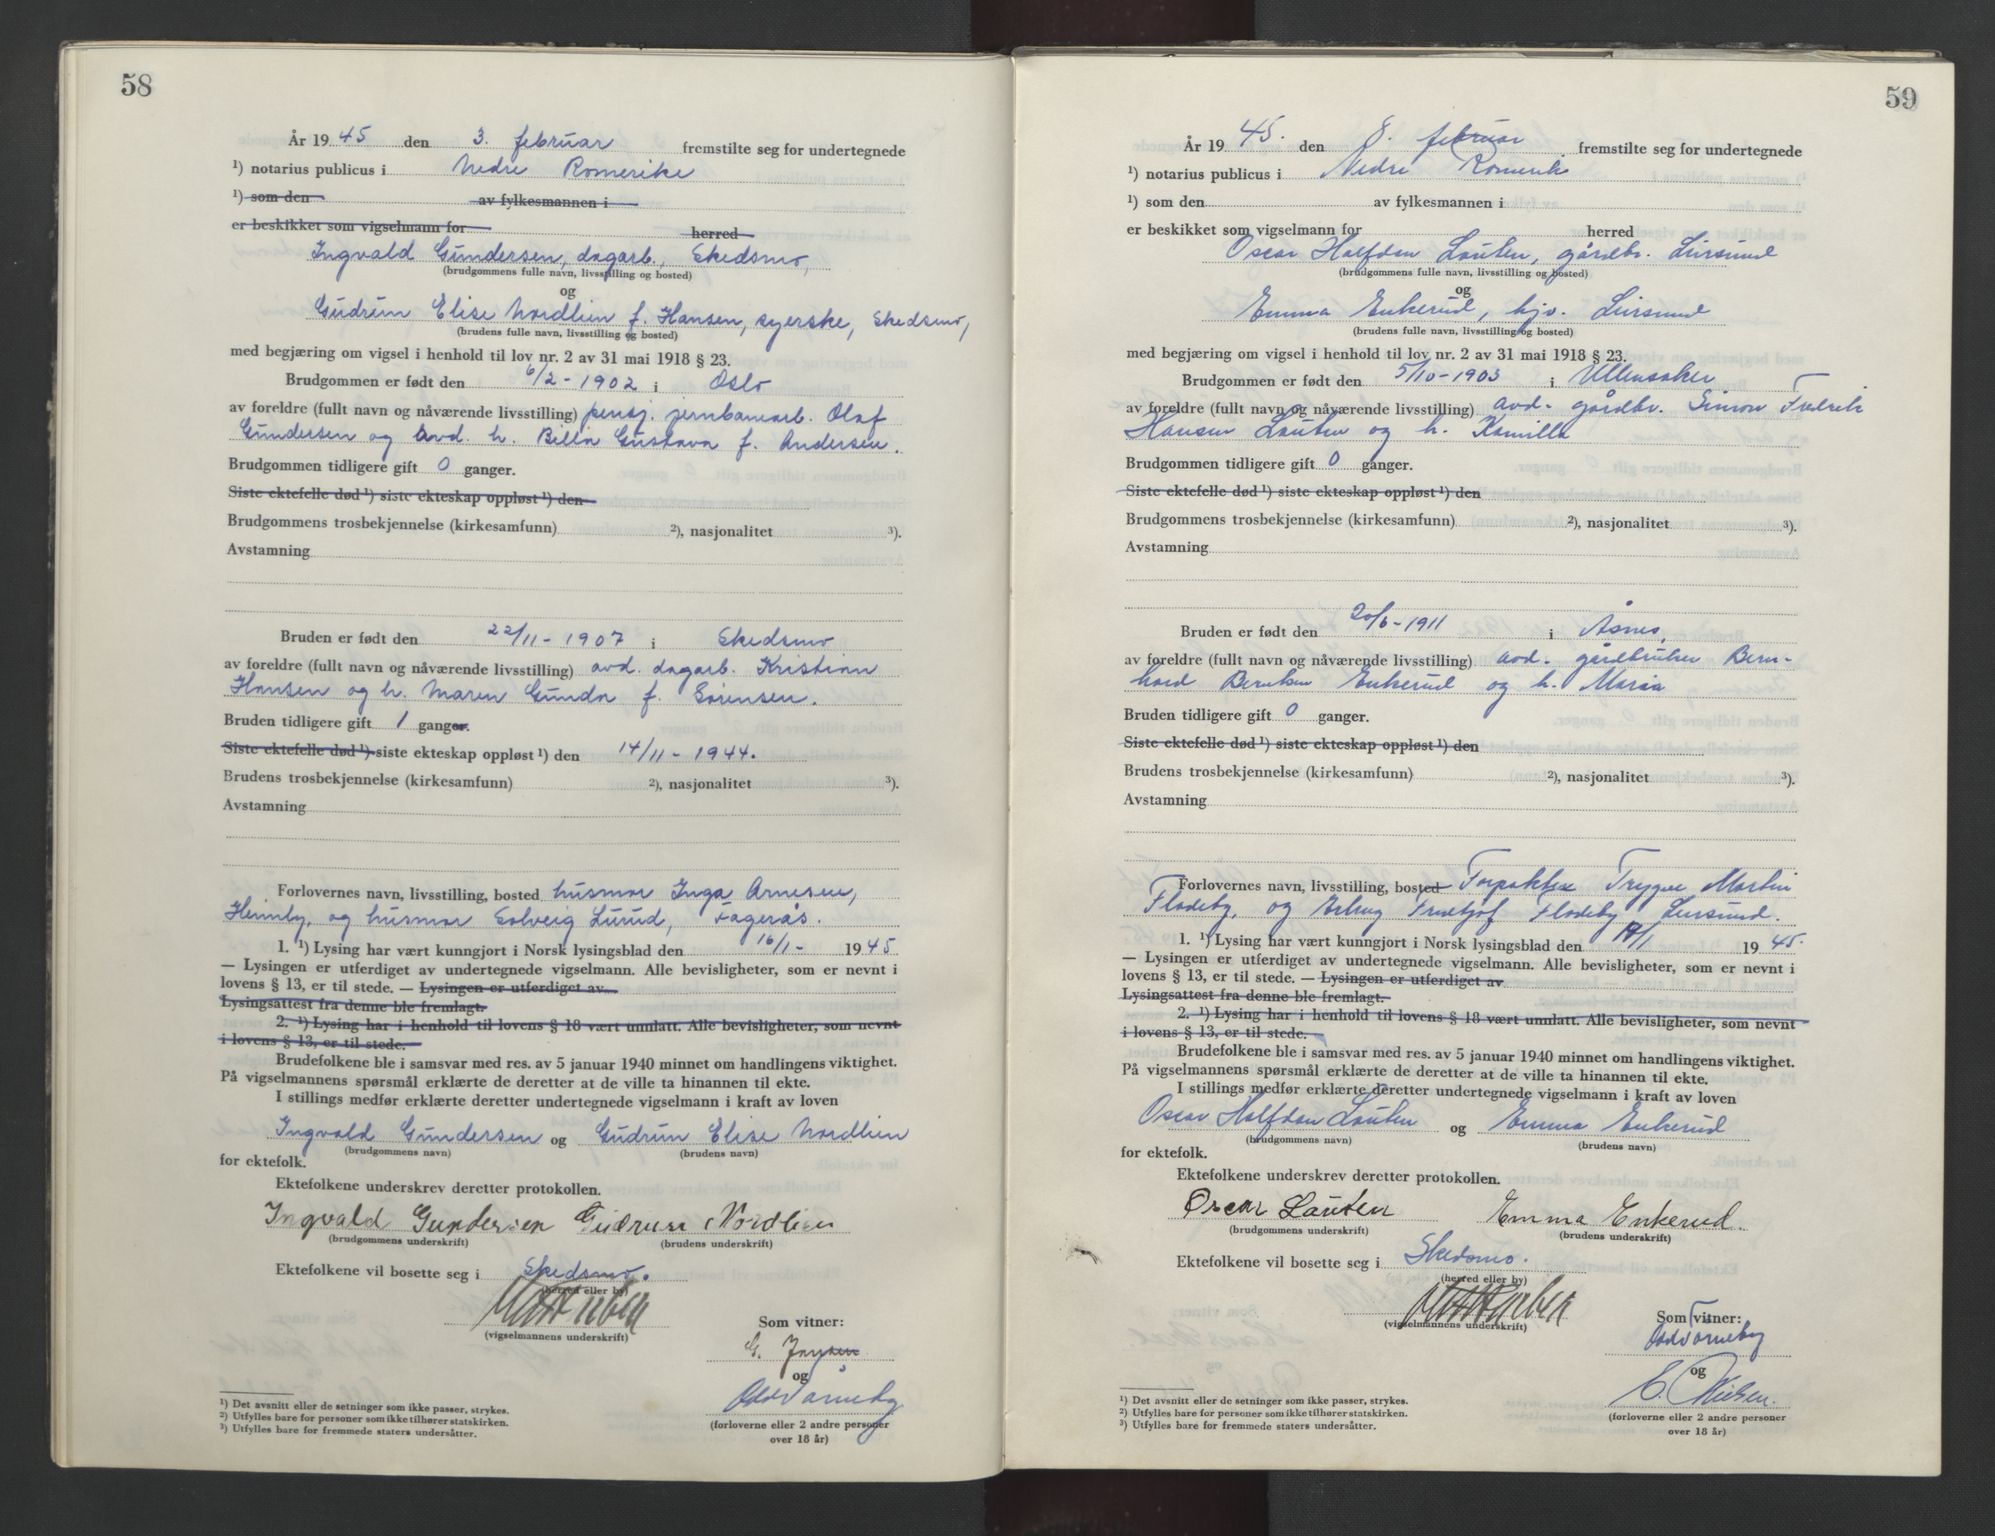 58
År 1945 den 3. februar fremstilte seg for undertegnede
¹) notarius publicus i Nedre Romerike
¹) som den av fylkesmannen i
er beskikket som vigselmann for herred
Ingvald Gundersen, dagarb., Skedsmo,
(brudgommens fulle navn, livsstilling og bosted)
og
Gudrun Elise Nordlien f. Hansen, syerske, Skedsmo,
(brudens fulle navn, livsstilling og bosted)
med begjæring om vigsel i henhold til lov nr. 2 av 31 mai 1918 § 23.
Brudgommen er født den 6/2 - 1902 i Oslo
av foreldre (fullt navn og nåværende livsstilling) pensj. jernbanearb. Olaf
Gundersen og avd. h. Gustava f. Andersen.
Brudgommen tidligere gift 0 ganger.
Siste ektefelle død ¹) siste ekteskap oppløst ¹) den
Brudgommens trosbekjennelse (kirkesamfunn) ²), nasjonalitet ³).
Avstamning
Bruden er født den 22/11 - 1907 i Skedsmo
av foreldre (fullt navn og nåværende livsstilling) avd. dagarb. Kristian
Hansen og h. Maren Gunda f. Sørensen.
Bruden tidligere gift 1 ganger.
Siste ektefelle død ¹) siste ekteskap oppløst ¹) den 14/11 - 1944.
Brudens trosbekjennelse (kirkesamfunn) ²), nasjonalitet ³).
Avstamning
Forlovernes navn, livsstilling, bosted husmor Inga Arnesen,
og husmor Solveig Lund, Fagerås.
1. ¹) Lysing har vært kunngjort i Norsk lysingsblad den 16/1 - 1945
— Lysingen er utferdiget av undertegnede vigselmann. Alle bevisligheter, som er nevnt i
lovens § 13, er til stede. — Lysingen er utferdiget av
Lysingsattest fra denne ble fremlagt.
2. ¹) Lysing har i henhold til lovens § 18 vært unnlatt. Alle bevisligheter, som nevnt
i lovens § 13, er til stede.
Brudefolkene ble i samsvar med res. av 5 januar 1940 minnet om handlingens viktighet.
På vigselmannens spørsmål erklærte de deretter at de ville ta hinannen til ekte.
I stillings medfør erklærte deretter undertegnede vigselmann i kraft av loven
Ingvald Gundersen og Gudrun Elise Nordlien
(brudgommens navn) (brudens navn)
for ektefolk.
Ektefolkene underskrev deretter protokollen.
Ingvald Gundersen Gudrun Nordlien
(brudgommens underskrift) (brudens underskrift)
Ektefolkene vil bosette seg i Skedsmo.
(herred eller by)
(vigselmannens underskrift)
Som vitner:
og
Odd Vårneby
(forloverne eller 2 andre personer
over 18 år)
¹) Det avsnitt eller de setninger som ikke passer, strykes.
²) Utfylles bare for personer som ikke tilhører statskirken.
³) Utfylles bare for fremmede staters undersåtter.
59
År 1945. den 8. februar fremstilte seg for undertegnede
¹) notarius publicus i Nedre Romerike
¹) som den av fylkesmannen i
er beskikket som vigselmann for herred
Oscar Halfdan Lauten, gårdbr. Leirsund
(brudgommens fulle navn, livsstilling og bosted)
og
Emma Enkerud, hjv. Leirsund
(brudens fulle navn, livsstilling og bosted)
med begjæring om vigsel i henhold til lov nr. 2 av 31 mai 1918 § 23.
Brudgommen er født den 5/10 - 1903 i Ullensaker
av foreldre (fullt navn og nåværende livsstilling) avd. gårdbr. Simon Fredrik
Hansen Lauten og h. Kamilla
Brudgommen tidligere gift 0 ganger.
Siste ektefelle død ¹) siste ekteskap oppløst ¹) den
Brudgommens trosbekjennelse (kirkesamfunn) ²), nasjonalitet ³).
Avstamning
Bruden er født den 20/6 - 1911 i Åsnes,
av foreldre (fullt navn og nåværende livsstilling) avd. gårdbruker Bern-
hard Berntsen Enkerud og h. Maria
Bruden tidligere gift 0 ganger.
Siste ektefelle død ¹) siste ekteskap oppløst ¹) den
Brudens trosbekjennelse (kirkesamfunn) ²), nasjonalitet ³).
Avstamning
Forlovernes navn, livsstilling, bosted Forpakter Trygve Martin
Flodeby, og Fredtjof Flodeby Leirsund.
1. ¹) Lysing har vært kunngjort i Norsk lysingsblad den 19/1 1945.
— Lysingen er utferdiget av undertegnede vigselmann. Alle bevisligheter, som er nevnt i
lovens § 13, er til stede. — Lysingen er utferdiget av
Lysingsattest fra denne ble fremlagt.
2. ¹) Lysing har i henhold til lovens § 18 vært unnlatt. Alle bevisligheter, som nevnt
i lovens § 13, er til stede.
Brudefolkene ble i samsvar med res. av 5 januar 1940 minnet om handlingens viktighet.
På vigselmannens spørsmål erklærte de deretter at de ville ta hinannen til ekte.
I stillings medfør erklærte deretter undertegnede vigselmann i kraft av loven
Oscar Halfdan Lauten og Emma Enkerud
(brudgommens navn) (brudens navn)
for ektefolk.
Ektefolkene underskrev deretter protokollen.
Oscar Lauten Emma Enkerud.
(brudgommens underskrift) (brudens underskrift)
Ektefolkene vil bosette seg i Skedsmo.
(herred eller by)
(vigselmannens underskrift)
Som vitner:
Odd Vårneby
og
E. Nielsen.
(forloverne eller 2 andre personer
over 18 år)
¹) Det avsnitt eller de setninger som ikke passer, strykes.
²) Utfylles bare for personer som ikke tilhører statskirken.
³) Utfylles bare for fremmede staters undersåtter.